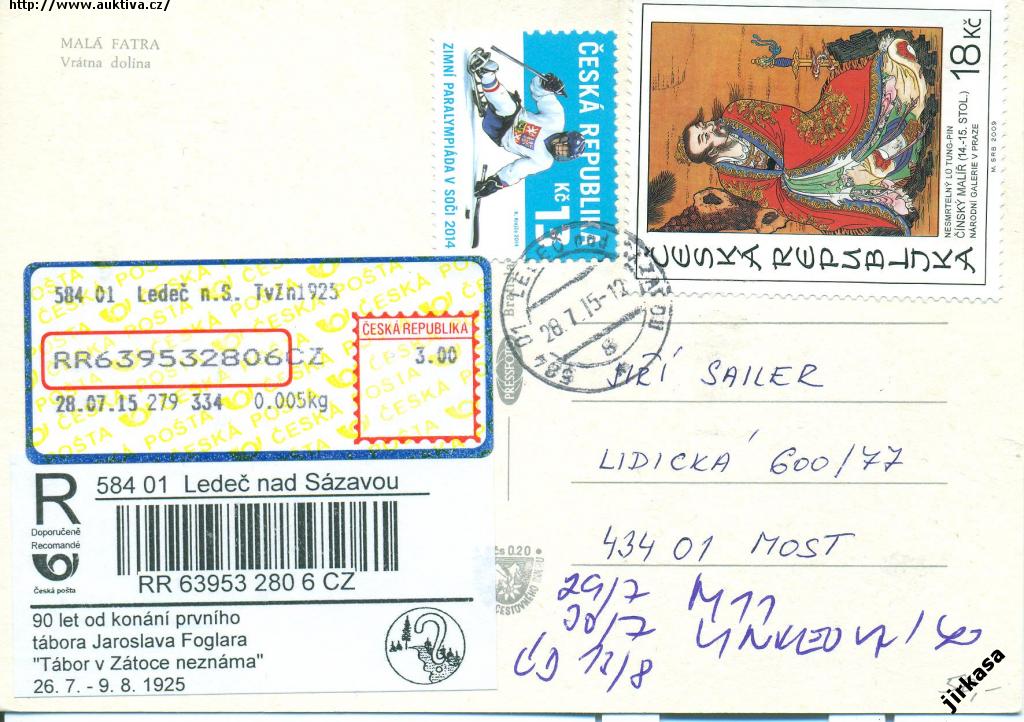 http://www.auktiva.cz/
MALÁ FATRA
Vrátna dolina
ČESKÁ REPUBLIKA
Kč
ZIMNÍ PARALYMPIÁDA V SOČI 2014
18 Kč
M. SRB 2009
NESMRTELNÝ LO TUNG-PIN
ČÍNSKÝ MALÍŘ (14.-15. STOL.)
NÁRODNÍ GALERIE V PRAZE
ČESKÁ REPUBLIKA
28.7.15-12
584 01 Ledeč n.S. TvZn1925
RR639532806CZ
28.07.15 279 334 0.005kg
ČESKÁ REPUBLIKA
3.00
PRESSFOTO
JIŘÍ SAILER
LIDICKÁ 600/77
434 01 MOST
R
Doporučeně
Recomandé
Česká pošta
584 01 Ledeč nad Sázavou
RR 63953 280 6 CZ
90 let od konání prvního
tábora Jaroslava Foglara
"Tábor v Zátoce neznáma"
26. 7. - 9. 8. 1925
Kčs 0.20
29/7 M11
30/7
ČD 13/8
jirkasa